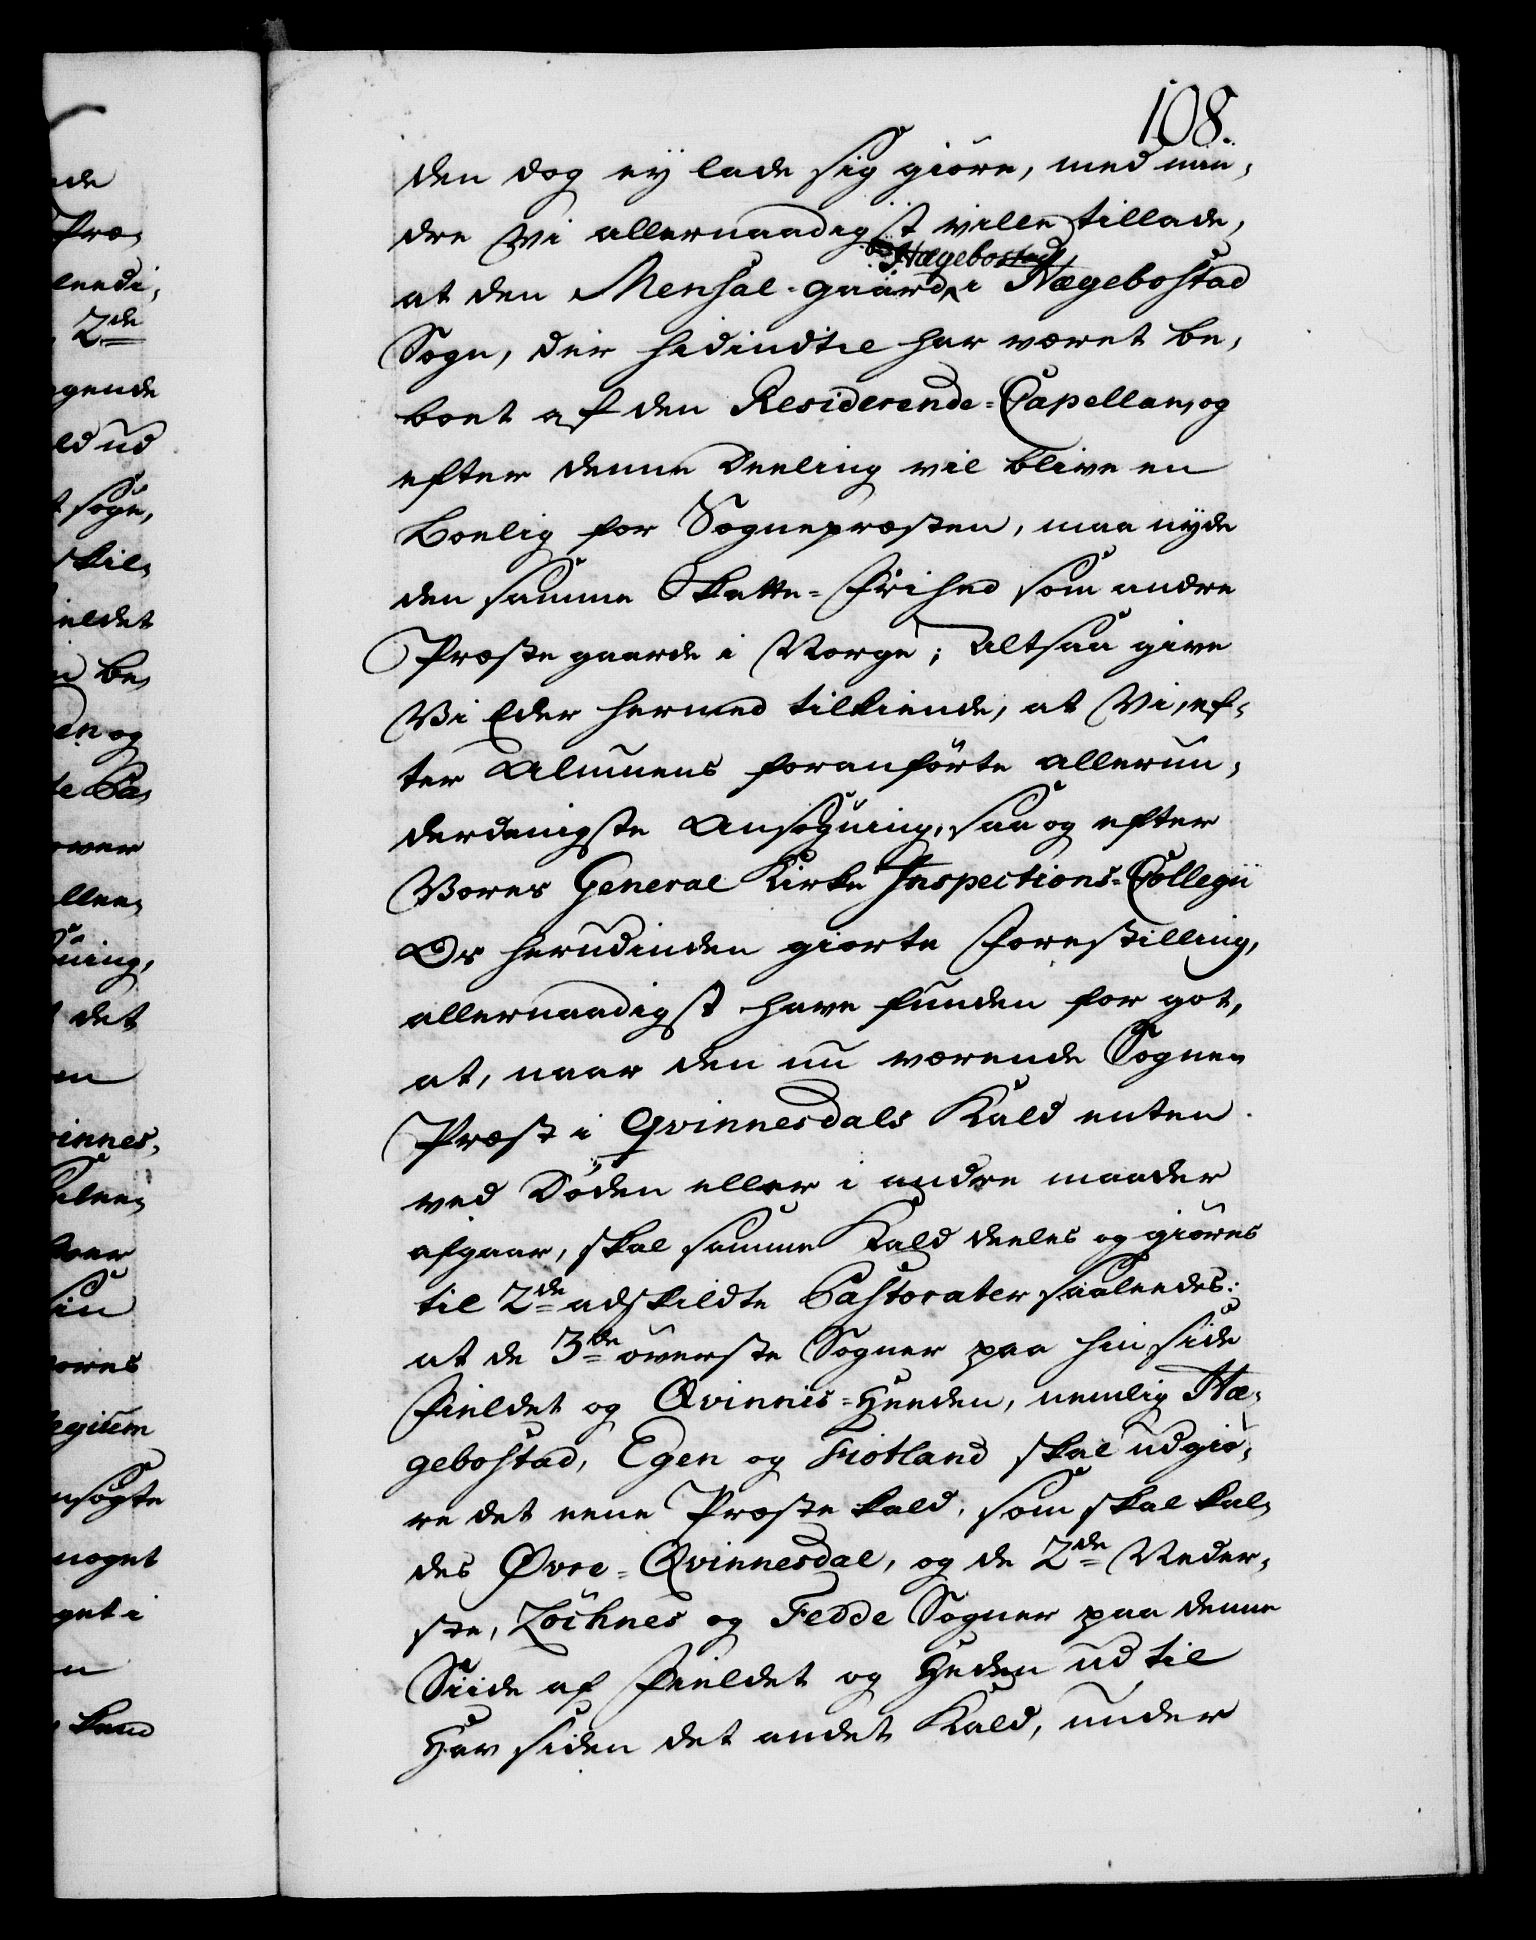 108.
den dog ey lade sig giöre, med min,
dre Vi allernaadigst ville tillade,
Hægebostad
at den Mensal-gaard i Hægebostad
Sogn, der hidindtil har været be,
boet af den Residerende-Capellan, og
efter denne Deeling vil blive en
Boelig for Sognepræsten, maa nyde
den samme Skatte-Frihed som andre
Præstegaarde i Norge; Altsaa give
Vi Eder hermed tilkiende, at Vi, ef-
ter Almuens foranförte allerun,
derdanigste Ansögning, saa og efter
Vores General Kirke Inspections-Collegii
Os herudinden giorte Forestilling,
allernaadigst have funden for got,
at, naar den nu værende Sogne-
Præst i Qvinnesdals Kald enten
ved Döden eller i andre maader
afgaar, skal samme Kald deeles og giöres
til 2de adskildte Pastorater saaleedes:
at de 3de överste Sogner paa hin side
Fieldet og Qvinnis-Heeden, nemlig Hæ,
gebostad, Egen og Fiotland skal udgiö,
re det eene Præstekald, som skal kal,
des Øvre-Qvinnesdal, og de 2de Neder,
ste, Löchnes og Fedde Sogner paa denne
Siide af Fieldet og Heden ud til
Hav siden det andet Kald, under
ade
Præ,
leedi,
2de
gende
eld ud
t sogn,
skil,
ieldet
n be,
en og
te Ca,
over
llee,
ning,
det
en
innes,
over
sin
ores
egium
nsögte
noget
get i
n
kand